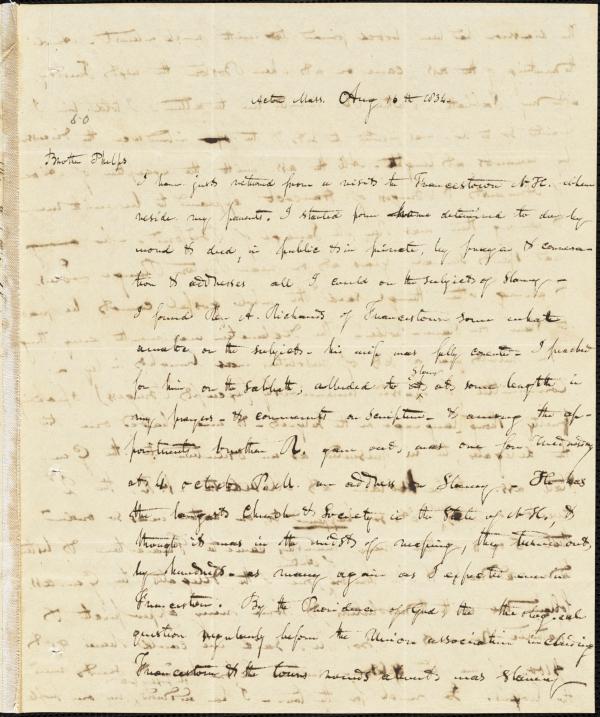 Acton Mass. Aug 16th 1834.
Brother Phelps
I have just returned from a visit to Francestown N.H. where
reside my parents. I started from home determined to do by
word & deed, in public & in private, by prayer & conversa-
tion & addresses all I could on the subject of Slavery -
I found Rev A. Richards of Francestown some what
awake on the subject - his wife was fully - I preached
for him on the sabbath, alluded to Slavery at some length in
my prayers - & comments on scripture - & among the ap-
pointments brother R. gave out, was one for Wednesday
at 4 oclock P.M. an address on Slavery - He has
the largest Church & Society in the State of N.H., &
though it was in the midst of reaping, they turned out
by hundreds - as many again as I expected even in
Francestown. By the Providence of God, the theological
question regularly before the Union association including
Francestown & the towns round about was Slavery